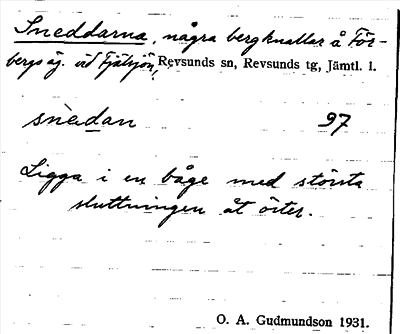 Sneddarna, några bergknallar å För-
bergs äg. vid Fjälsjön, Revsunds sn, Revsunds tg, Jämtl. l.
snèdan 97
Ligga i en båge med största
sluttningen åt öster.
O. A. Gudmundson 1931.